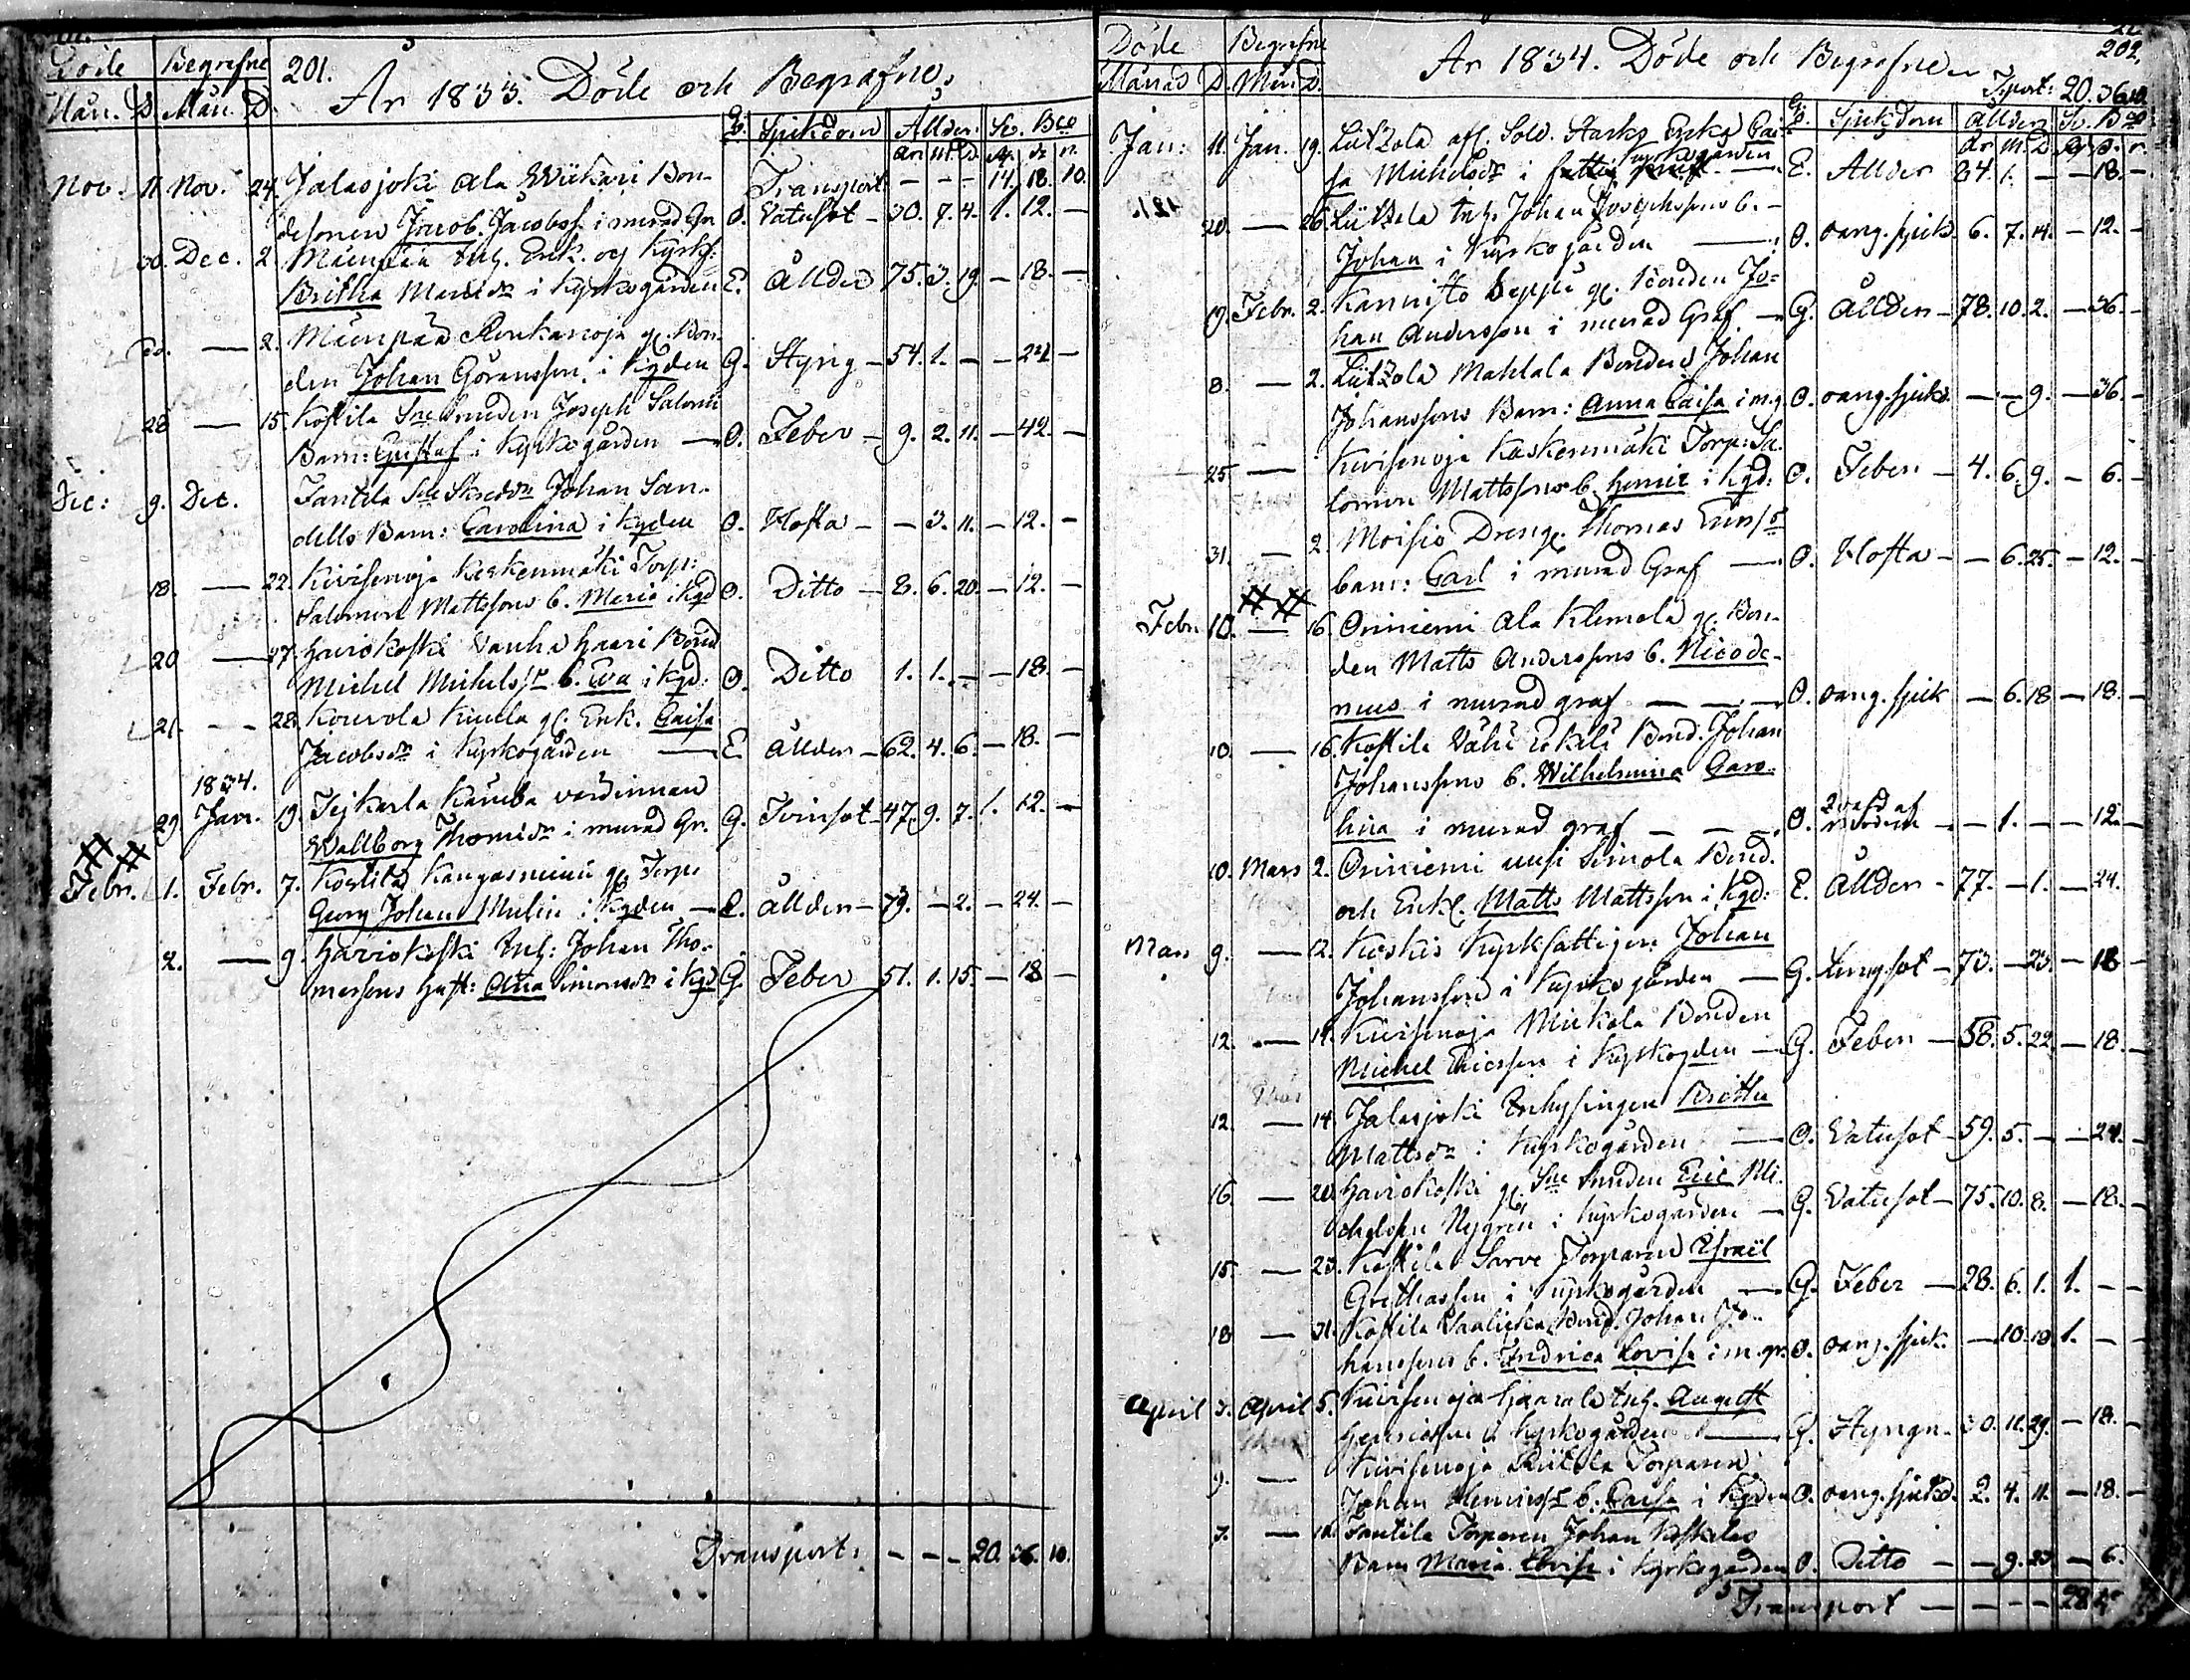 Döde Begrafne 201.
År 1833. Döde och Begrafne.
Mån. D. Mån. D.
Sjukdom Ålder Sr. Bco
år m. D.
Transport. — — — 14. 18. 10.
Nov. 11. Nov. 24. Jalasjoki Ala Wiikari Bon-
desonen Jacob Jacobss. i murad Gr. O. Vatusot — 30. 7. 4. 1. 12. —
30. Dec. 2. Mäenpää Inh. Enk. och Kyrkf:
Britha Matsdr i Kyrkogården E. Ålder 75. 3. 19. — 18. —
— 2. Mäenpää gl. Bon-
den Johan Göransson i Kgden G. Styng — 54. 1. — — 24 —
28 — 15. Kottila Sne Smeden Joseph Salomii
Barn: Gustaf i Kyrkogården — O. Feber — 9. 2. 11. — 42. —
Dec: 9. Dec. Santila Sne Skreddn Johan San-
dells Barn: Carolina i Kgden O. Hosta — — 3. 11. — 12. —
18. — 22. Kivisenoja Keskenmäki Torp:
Salomon Mattssons b. Maria i Kgd O. Ditto — 8. 6. 20. — 12. —
20 — 27. Haviokoski Vanha Haari Bond
Michel Michelss b. Eva i Kgd: O. Ditto 1. 1. — — 18. —
21. — 28. Kouvola Knulla gl. Enk. Caisa
Jacobsdr i Kyrkogården — E. Ålder — 62. 4. 6. — 18. —
1834.
29 Jan. 19. werdinnan
Wallborg Thomsdr i murad Gr. G. Tvinsot — 47. 9. 7. 1. 12. —
Febr. 1. Febr. 7. Kostila Kangasniemi gl. Torp.
Georg Johan Mulin i Kgden — E. Ålder — 79. — 2. — 24. —
2. — 9. Haviokoski Inh: Johan Tho-
massons hust: Anna Simonsdr i Kgd G. Feber 51. 1. 15. — 18 —
Transport. — — — 20. 36. 10.
Döde Begrafne 202.
År 1834. Döde och Begrafne
Månad D. Mån. D. Tsport: 20. 36. 10
Sjukdom Ålder Sr. Bco
År M. D.
Jan: 11. Jan. 19. Lützola afl. Sold. Starks Enka Cai-
sa Michelsdr i Kyrkogården — E. Ålder 84. 1. — — 18. —
20. — 26. Lützola Inh. Johan Josephssons b. —
Johan i Kyrkogården — O. oang. sjuk. 6. 7. 14. — 12. —
19. Febr. 2. Kannisto Seppä gl. Bonden Jo-
han Andersson i murad Graf. — G. Ålder — 78. 10. 2. — 36. —
8. — 2. Lützola Mahlala Bonden Johan
Johanssons Barn: Anna Caisa i m.g. O. oang. sjukd. — — 9. — 36. —
25 — Kivisenoja Kaskenmäki Torp: Sa-
lomon Mattssons b. Henric i Kgd: O. Feber — 4. 6. 9. — 6. —
31. — 2 Moisio Dreng. Thomas
barn: Carl i murad Graf — O. Hosta — — 6. 25. — 12. —
Febr. 10. — 16. Oriniemi Ala Klemola gl. Bon-
den Matts Anderssons b. Nicode-
mus i murad graf — — — O. oang. sjuk — 6. 18 — 18. —
10. — 16. Kottila Bond. Johan
Johanssons b. Wilhelmina Caro-
lina i murad graf — — — O. qvafd af modren — — 1. — — 12. —
10. Mars 2. Oriniemi uusi Seinola Bond.
och Enkl. Matts Mattsson i Kgd: E. Ålder — 77. — 1. — 24.
Mars 9. — 12. Koskis Kyrkfattigen Johan
Johansson i Kyrkogården — G. Lungsot — 73. — 23. — 18 —
12. — 14. Kivisenoja Mickola Bonden
Michel Ericsson i Kyrkogden — G. Feber — 58. 5. 22. — 18. —
12. — 14. Jalasjoki Inhysingen Britha
Mattsdr i Kyrkogården — O. Vatusot — 59. 5. — — 24. —
16. — 20. Haviokoski gl. Sne Smeden Eric Mi-
chelsson Nygren i Kyrkogården — G. Vatusot — 75. 10. 8. — 18. —
15. — 23. Kottila Sarve Torparen Israël
i Kyrkogården — G. Feber — 28. 6. 1. 1. — —
18 — 31. Kottila Bond. Johan Jo-
hanssons b. Fredrica Lovisa i m. gr. O. oang. sjuk. — 10. 19 1. — —
April 3. April 5. Kivisenoja Inh. August
Henricsson i Kyrkogården — G. Styngn. 30. 11. 29. — 18. —
9. — Kivisenoja Torparen
Johan b. Caisa i Kgden O. oang. sjukd. 2. 4. 11. — 18. —
7. — Santila Torparen Johan
Barn Maria Lovisa i Kyrkogården O. Ditto — — 9. 23 — 6.
Transport — — — —